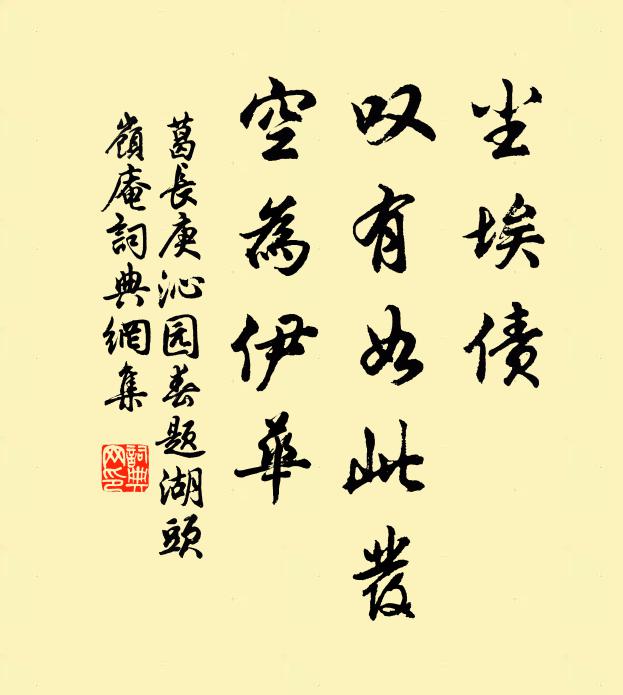 尘埃债
叹有如此发
空为伊华
葛长庚沁园春题湖头
岭庵词典网集
詞典
网印